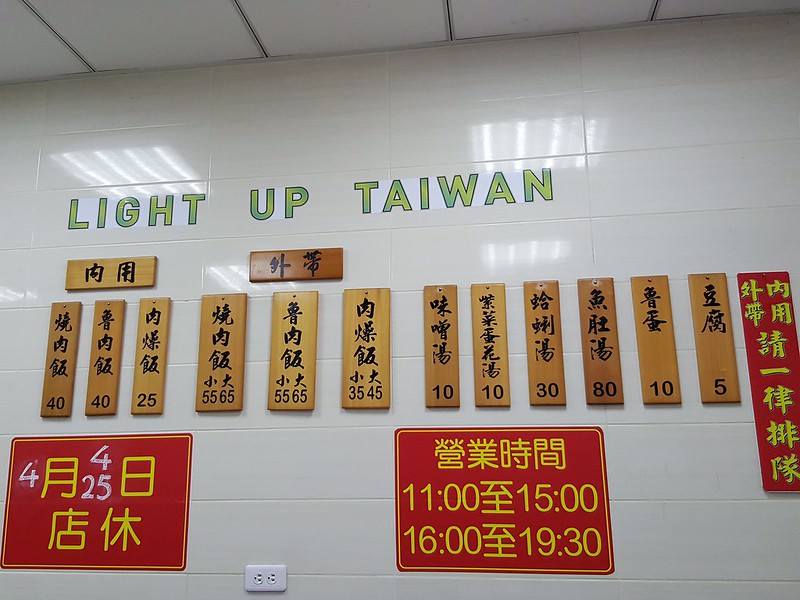 LIGHT UP TAIWAN
內用
外帶
燒肉飯
40
魯肉飯
40
肉燥飯
25
燒肉飯
小大
5565
魯肉飯
小大
5565
肉燥飯
小大
3545
味噌湯
10
紫菜蛋花湯
10
蛤蜊湯
30
魚肚湯
80
魯蛋
10
豆腐
5
內用
外帶
請一律排隊
4月4日
25
店休
營業時間
11:00至15:00
16:00至19:30